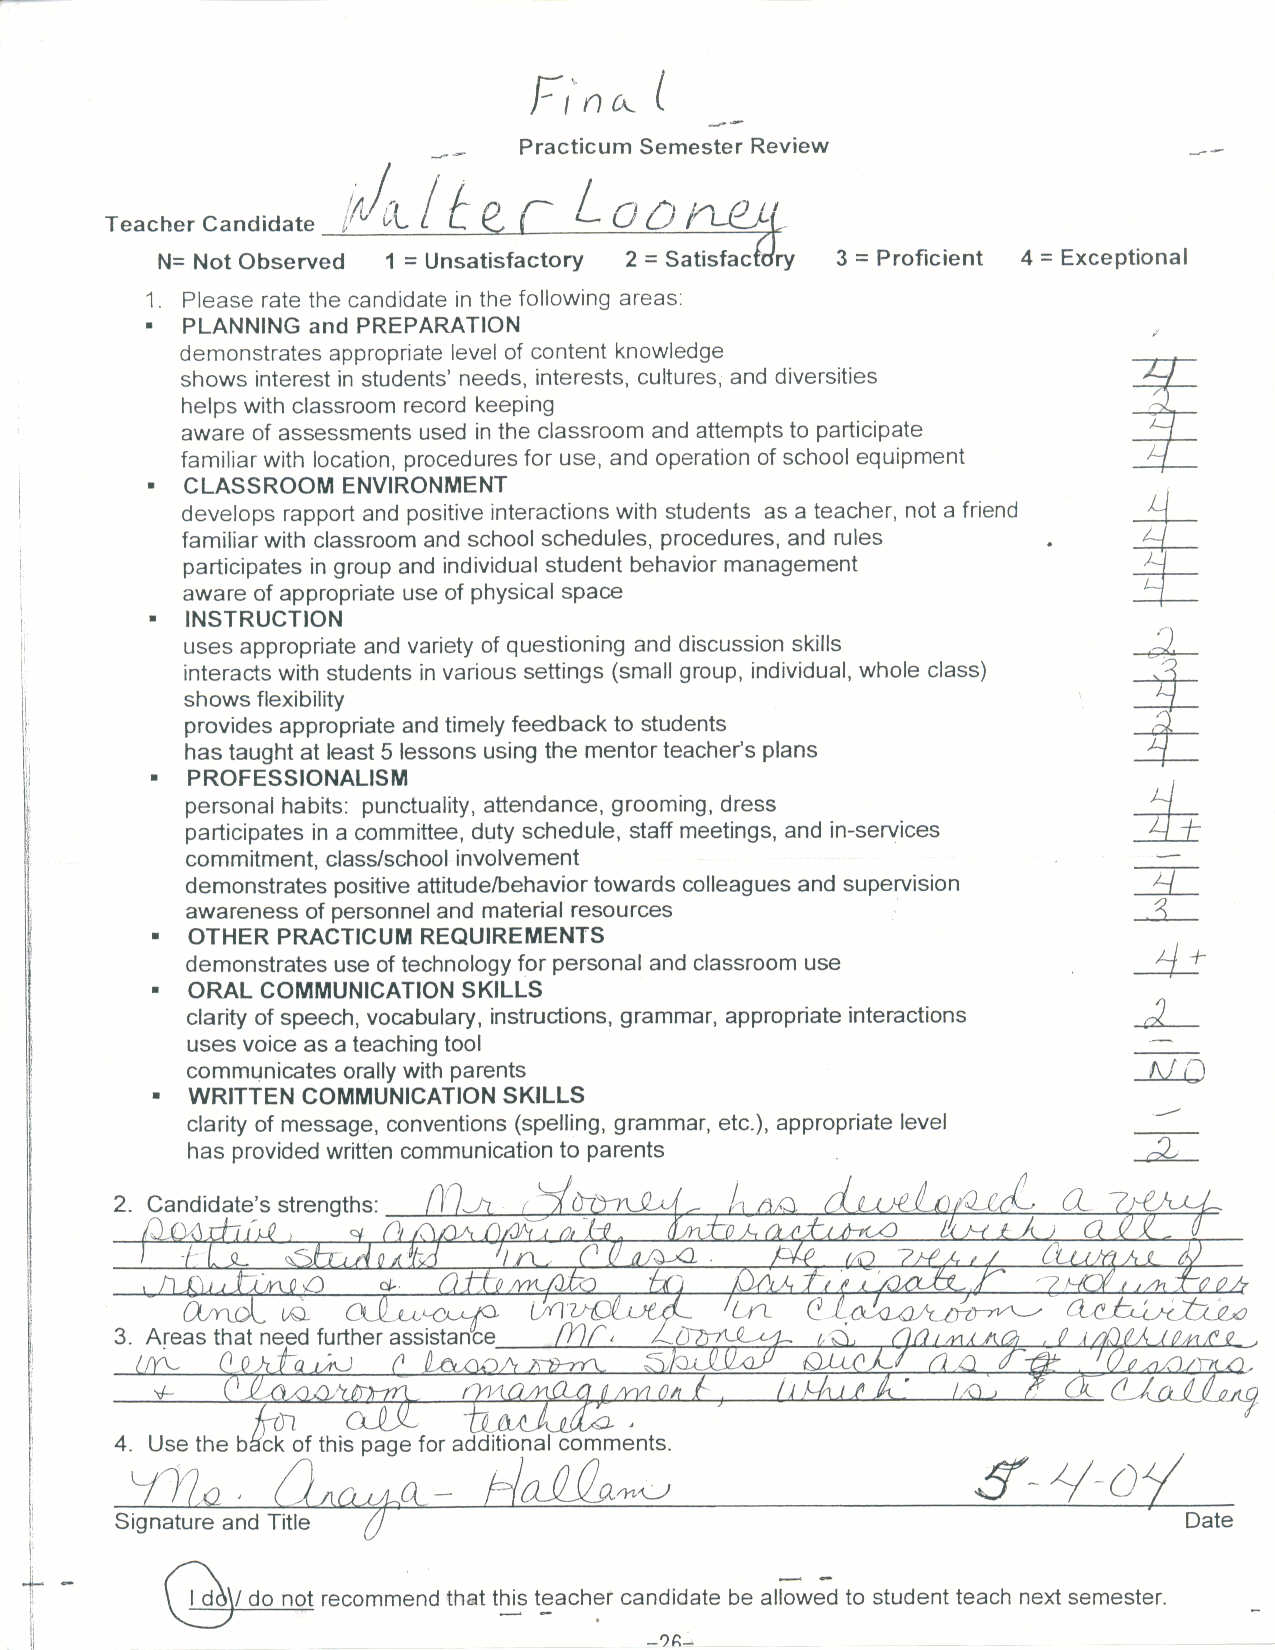 Final
Practicum Semester Review
Teacher Candidate Walter Looney
N= Not Observed 1 = Unsatisfactory 2 = Satisfactory 3 = Proficient 4 = Exceptional
1. Please rate the candidate in the following areas:
▪ PLANNING and PREPARATION
demonstrates appropriate level of content knowledge
shows interest in students' needs, interests, cultures, and diversities 4
helps with classroom record keeping 2
aware of assessments used in the classroom and attempts to participate 4
familiar with location, procedures for use, and operation of school equipment 4
▪ CLASSROOM ENVIRONMENT
develops rapport and positive interactions with students as a teacher, not a friend 4
familiar with classroom and school schedules, procedures, and rules 4
participates in group and individual student behavior management 4
aware of appropriate use of physical space 4
▪ INSTRUCTION
uses appropriate and variety of questioning and discussion skills 2
interacts with students in various settings (small group, individual, whole class) 3
shows flexibility 4
provides appropriate and timely feedback to students 2
has taught at least 5 lessons using the mentor teacher's plans 4
▪ PROFESSIONALISM
personal habits: punctuality, attendance, grooming, dress 4
participates in a committee, duty schedule, staff meetings, and in-services 4+
commitment, class/school involvement –
demonstrates positive attitude/behavior towards colleagues and supervision 4
awareness of personnel and material resources 3
▪ OTHER PRACTICUM REQUIREMENTS
demonstrates use of technology for personal and classroom use 4+
▪ ORAL COMMUNICATION SKILLS
clarity of speech, vocabulary, instructions, grammar, appropriate interactions 2
uses voice as a teaching tool –
communicates orally with parents NO
▪ WRITTEN COMMUNICATION SKILLS
clarity of message, conventions (spelling, grammar, etc.), appropriate level –
has provided written communication to parents 2
2. Candidate's strengths: Mr Looney has developed a very
positive & appropriate interactions with all
the students in class. He is very aware of
routines & attempts to participate, volunteer
and is always involved in classroom activities
3. Areas that need further assistance Mr. Looney is gaining experience
in certain classroom skills such as lessons
+ classroom management, which is a challeng
for all teachers.
4. Use the back of this page for additional comments.
Ms. Araya-Hallam 5-4-04
Signature and Title Date
I do / do not recommend that this teacher candidate be allowed to student teach next semester.
–26–